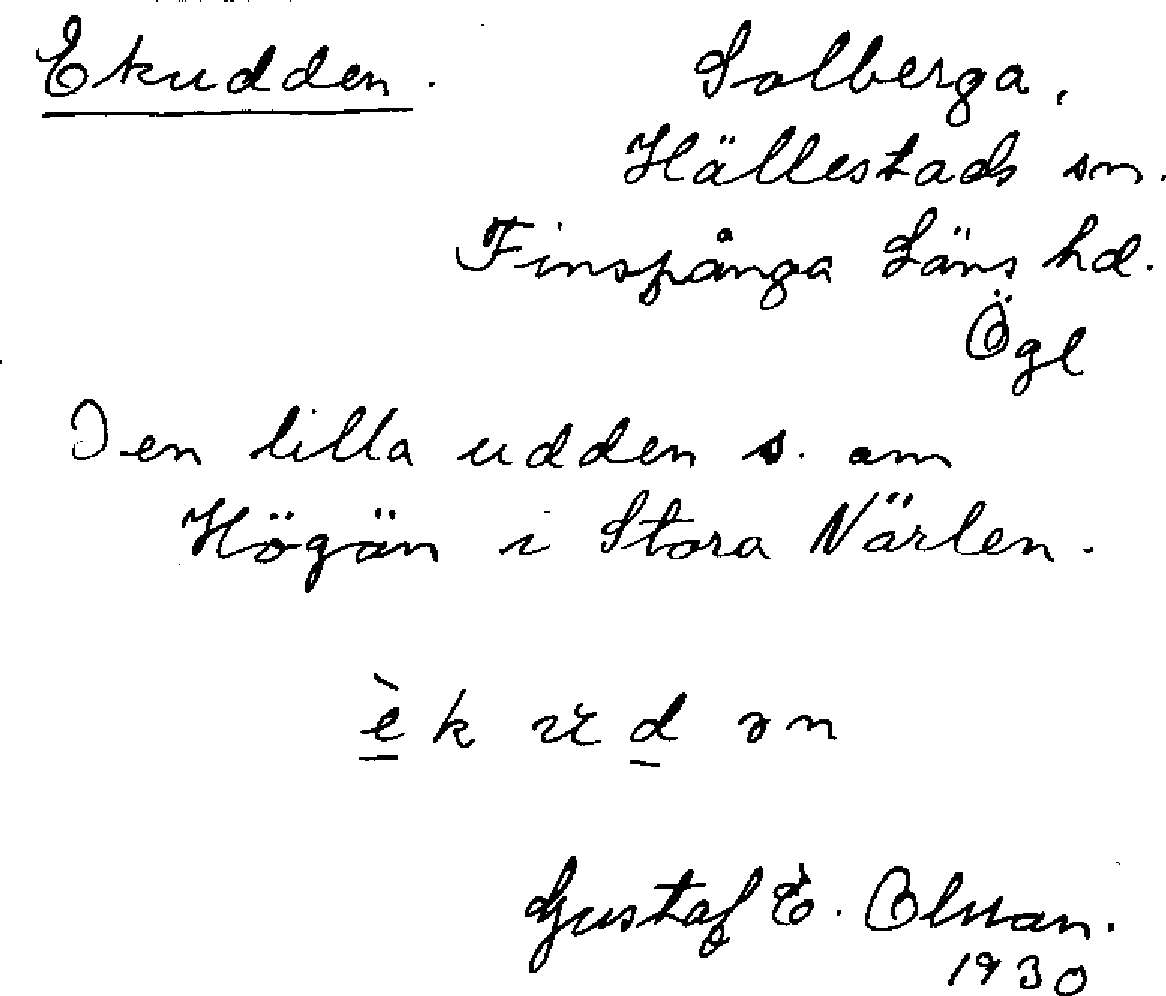 Ekudden. Solberga,
Hällestads sn.
Finspånga Läns hd.
Ögl
Den lilla udden s. om
Högön i Stora Närlen.
èk ud ən
Gustaf E. Olsson.
1930